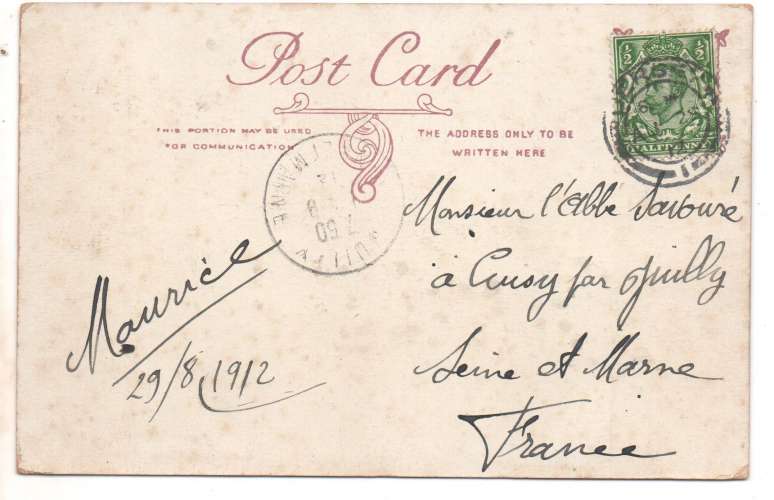 Post Card
THIS PORTION MAY BE USED
FOR COMMUNICATION
THE ADDRESS ONLY TO BE
WRITTEN HERE
½ ½
HALFPENNY
Monsieur l'abbé Savouré
à Cuisy par Juilly
Seine et Marne
France
Maurice
29/8/1912